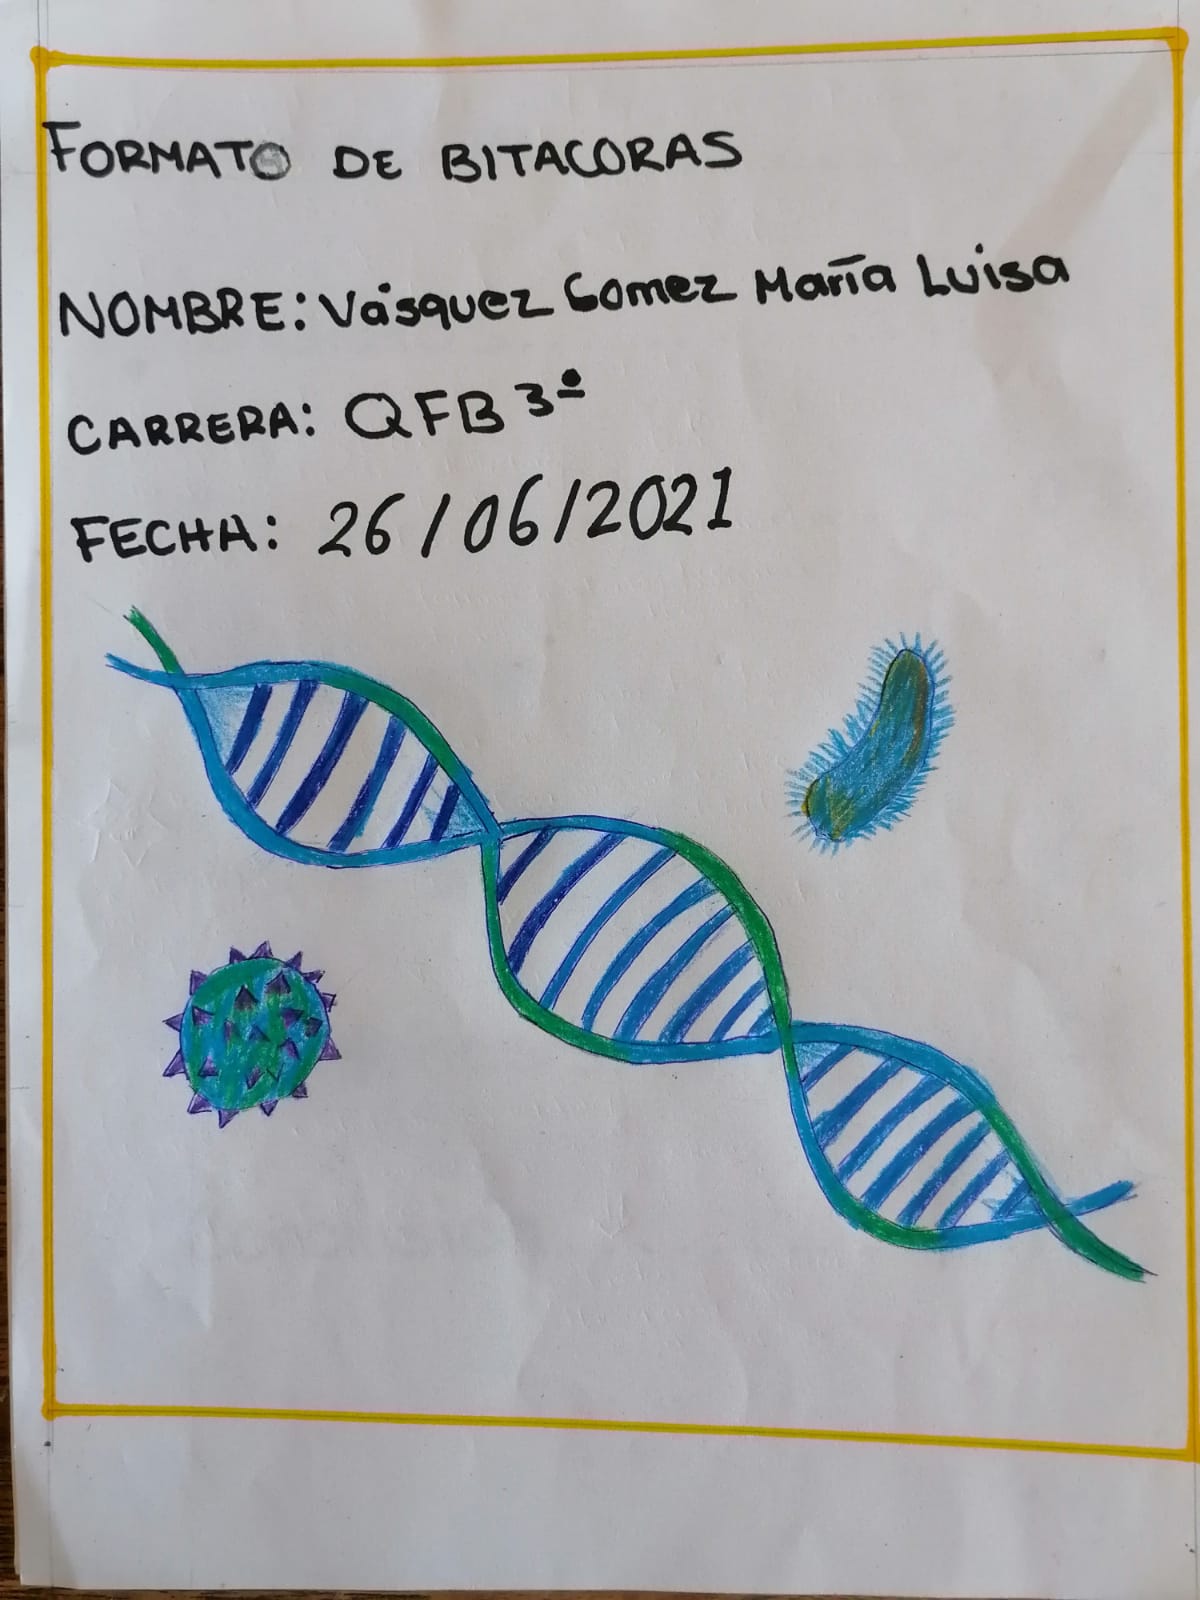 FORMATO DE BITACORAS
NOMBRE: Vásquez Gomez María Luisa
CARRERA: QFB 3º
FECHA: 26/06/2021